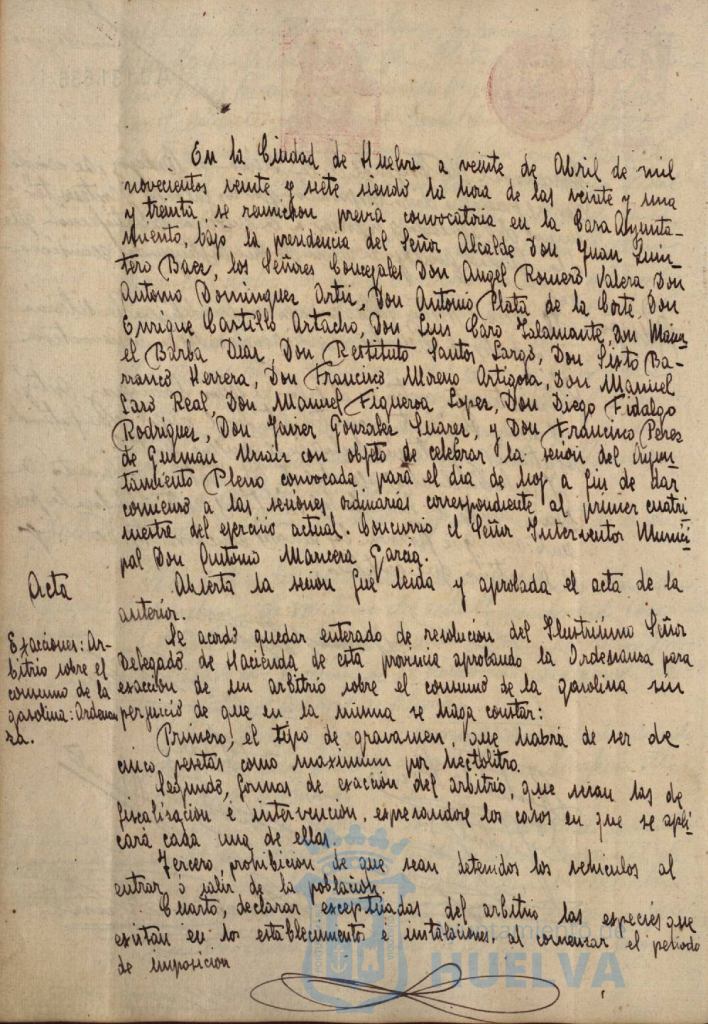 En la Ciudad de Huelva a veinte de Abril de mil
novecientos veinte y siete siendo la hora de las veinte y una
y treinta, se reunieron previa convocatoria en la Casa Ayunta-
miento, bajo la presidencia del Señor Alcalde Don Juan Quin-
tero Baez, los Señores Concejales Don Angel Romero Valera Don
Antonio Dominguez Don Antonio Plata de la Corte, Don
Enrique Castillo Artacho, Don Luis Caro Don Manu-
el Barba Diaz, Don Restituto Santos Largo, Don Sixto Ba-
rranco Herrera, Don Francisco Moreno Artigota, Don Manuel
Caro Real, Don Manuel Figueroa Lopez, Don Diego Fidalgo
Rodriguez, Don Javier Gonzalez Suarez, y Don Francisco Perez
de Guzman Urzaiz con objeto de celebrar la sesion del Ayun-
tamiento Pleno convocada para el dia de hoy a fin de dar
comienzo a las sesiones ordinarias correspondiente al primer cuatri
mestre del ejercicio actual. Concurrio el Señor Interventor Munici
pal Don Antonio Mancera Garcia.
Acta
Abierta la sesion fué leida y aprobada el acta de la
anterior.
Exacciones: Ar-
bitrio sobre el
consumo de la
gasolina: Ordenan
za.
Se acordó quedar enterado de resolucion del Ilustrisimo Señor
Delegado de Hacienda de esta provincia aprobando la Ordenanza para
exacción de un arbitrio sobre el consumo de la gasolina sin
perjuicio de que en la misma se haga constar:
Primero, el tipo de gravamen, que habrá de ser de
cinco pesetas como maximum por hectolitro.
Segundo, formas de exacción del arbitrio, que seran las de
fiscalización é intervención, expresandose los casos en que se apli
cará cada una de ellas.
Tercero, prohibicion de que sean detenidos los vehiculos al
entrar ó salir de la población.
Cuarto, declarar exceptuadas del arbitrio las especies que
existan en los establecimientos é instalaciones, al comenzar el periodo
de imposicion
HUELVA